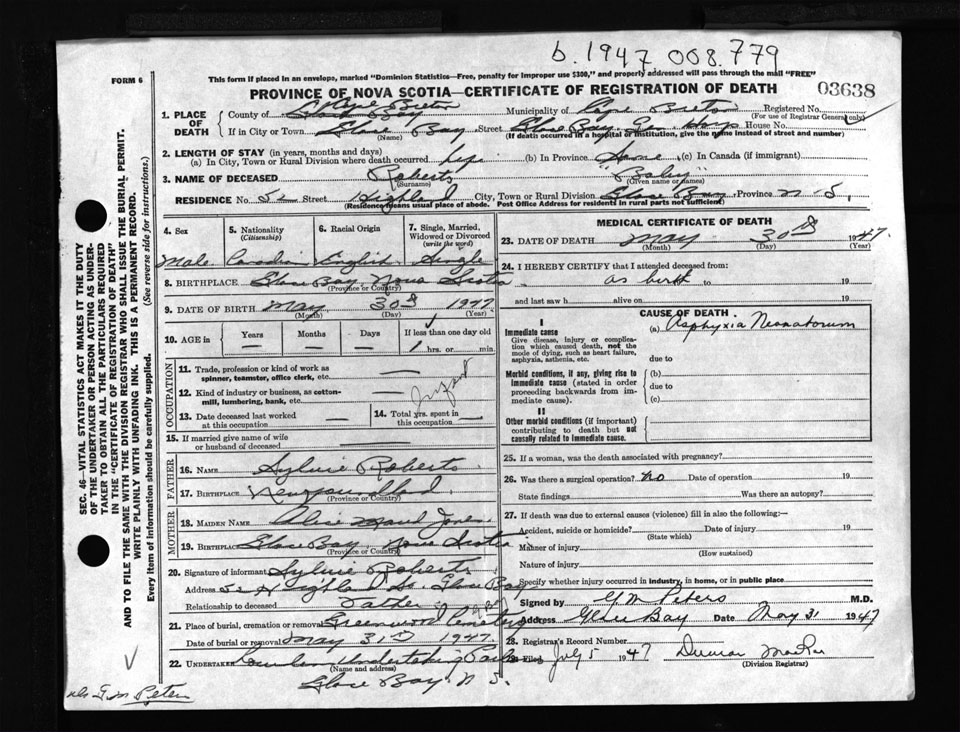 b. 1947 008.779
FORM 6
This form if placed in an envelope, marked "Dominion Statistics—Free, penalty for improper use $300," and properly addressed will pass through the mail "FREE"
PROVINCE OF NOVA SCOTIA—CERTIFICATE OF REGISTRATION OF DEATH
03638
1. PLACE OF DEATH
County of Cape Breton Municipality of Cape Breton Registered No.
(For use of Registrar General only)
If in City or Town Glace Bay Street Glace Bay Gen. Hosp House No.
(Name) (If death occurred in a hospital or institution, give the name instead of street and number)
2. LENGTH OF STAY (in years, months and days)
(a) In City, Town or Rural Division where death occurred life (b) In Province (c) In Canada (if immigrant)
3. NAME OF DECEASED Roberts "Baby"
(Surname) (Given name or names)
RESIDENCE No. 52 Street Highland City, Town or Rural Division Glace Bay Province N.S.
(Residence means usual place of abode. Post Office Address for residents in rural parts not sufficient)
4. Sex 5. Nationality (Citizenship) 6. Racial Origin 7. Single, Married, Widowed or Divorced (write the word)
Male Canadian English Single
8. BIRTHPLACE Glace Bay, Nova Scotia
(Province or Country)
9. DATE OF BIRTH May 30th 1947
(Month) (Day) (Year)
10. AGE in Years Months Days If less than one day old
— — — 1 hrs. or min.
OCCUPATION
11. Trade, profession or kind of work as spinner, teamster, office clerk, etc. —
12. Kind of industry or business, as cotton-mill, lumbering, bank, etc. —
Infant
13. Date deceased last worked at this occupation — 14. Total yrs. spent in this occupation —
15. If married give name of wife or husband of deceased —
FATHER
16. NAME Sylvie Roberts
17. BIRTHPLACE Newfoundland
(Province or Country)
MOTHER
18. MAIDEN NAME Alice Maud Jones
19. BIRTHPLACE Glace Bay, Nova Scotia
(Province or Country)
20. Signature of informant Sylvie Roberts
Address 52 Highland St. Glace Bay
Relationship to deceased Father
21. Place of burial, cremation or removal Greenwood Cemetery
Date of burial or removal May 31st 1947
22. UNDERTAKER Undertaking
(Name and address)
Glace Bay N.S.
MEDICAL CERTIFICATE OF DEATH
23. DATE OF DEATH May 30th 1947
(Month) (Day) (Year)
24. I HEREBY CERTIFY that I attended deceased from:
at birth to 19
and last saw h alive on 19
CAUSE OF DEATH
I
Immediate cause (a) Asphyxia Neonatorum
Give disease, injury or complication which caused death, not the mode of dying, such as heart failure, asphyxia, asthenia, etc.
due to
Morbid conditions, if any, giving rise to immediate cause (stated in order proceeding backwards from immediate cause).
(b)
due to
(c)
II
Other morbid conditions (if important) contributing to death but not causally related to immediate cause.
25. If a woman, was the death associated with pregnancy?
26. Was there a surgical operation? No Date of operation 19
State findings Was there an autopsy?
27. If death was due to external causes (violence) fill in also the following:—
Accident, suicide or homicide? Date of injury 19
(State which)
Manner of injury
(How sustained)
Nature of injury
Specify whether injury occurred in industry, in home, or in public place
Signed by G M Peters M.D.
Address Glace Bay Date May 31 1947
28. Registrar's Record Number
Filed July 5 1947
(Division Registrar)
SEC. 46—VITAL STATISTICS ACT MAKES IT THE DUTY
OF THE UNDERTAKER OR PERSON ACTING AS UNDER-
TAKER TO OBTAIN ALL THE PARTICULARS REQUIRED
IN THE "CERTIFICATE OF REGISTRATION OF DEATH"
AND TO FILE THE SAME WITH THE DIVISION REGISTRAR WHO SHALL ISSUE THE BURIAL PERMIT.
WRITE PLAINLY WITH UNFADING INK. THIS IS A PERMANENT RECORD.
Every item of information should be carefully supplied. (See reverse side for instructions.)
G.M. Peters